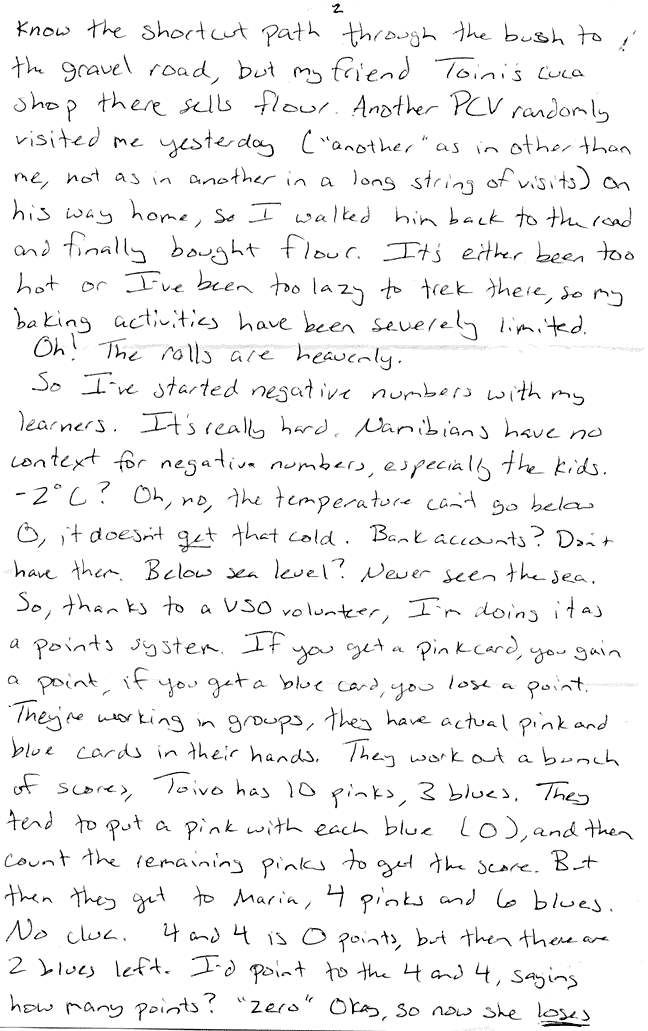 2
know the shortcut path through the bush to
the gravel road, but my friend Toini's cuca
shop there sells flour. Another PCV randomly
visited me yesterday ("another" as in other than
me, not as in another in a long string of visits) on
his way home, so I walked him back to the road
and finally bought flour. It's either been too
hot or I've been too lazy to trek there, so my
baking activities have been severely limited.
Oh! The rolls are heavenly.
So I've started negative numbers with my
learners. It's really hard. Namibians have no
context for negative numbers, especially the kids.
-2°C? Oh, no, the temperature can't go below
0, it doesn't get that cold. Bank accounts? Don't
have them. Below sea level? Never seen the sea.
So, thanks to a VSO volunteer, I'm doing it as
a points system. If you get a pink card, you gain
a point, if you get a blue card, you lose a point.
They're working in groups, they have actual pink and
blue cards in their hands. They work out a bunch
of scores, Toivo has 10 pinks, 3 blues. They
tend to put a pink with each blue (0), and then
count the remaining pinks to get the score. But
then they get to Maria, 4 pinks and 6 blues.
No clue. 4 and 4 is 0 points, but then there are
2 blues left. I'd point to the 4 and 4, saying
how many points? "zero" Okay, so now she loses